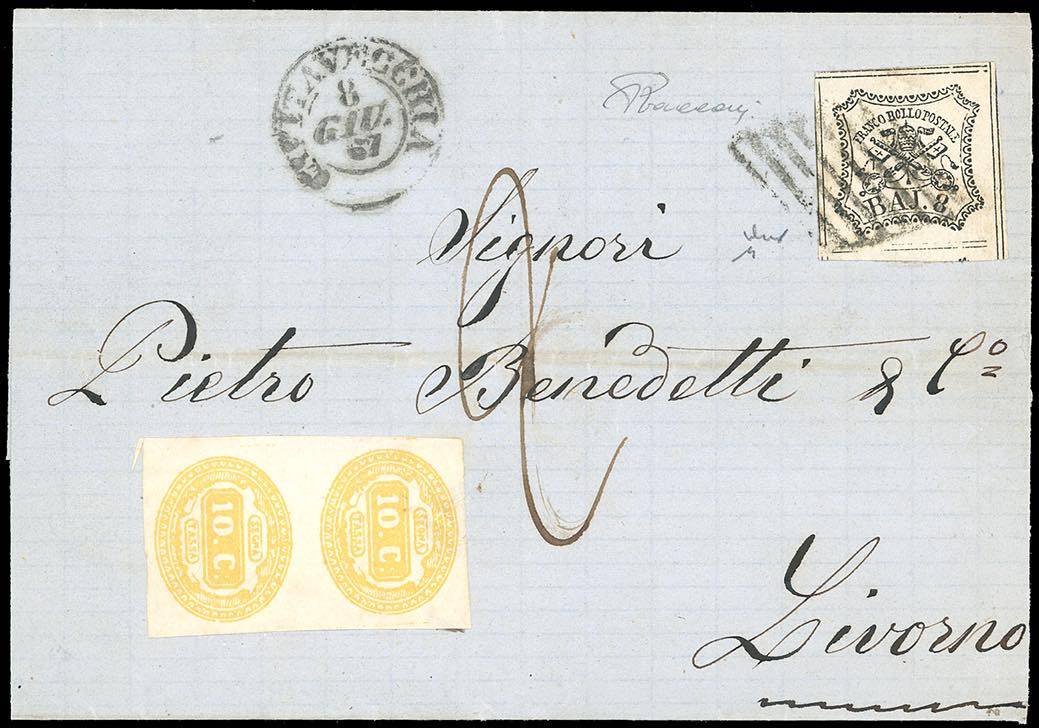 CIVITAVECCHIA
8
GIU.
67
FRANCO BOLLO POSTALE
BAJ. 8
Signori
Pietro Benedetti & Co
10. C.
SEGNA
TASSA
10. C.
SEGNA
TASSA
Livorno